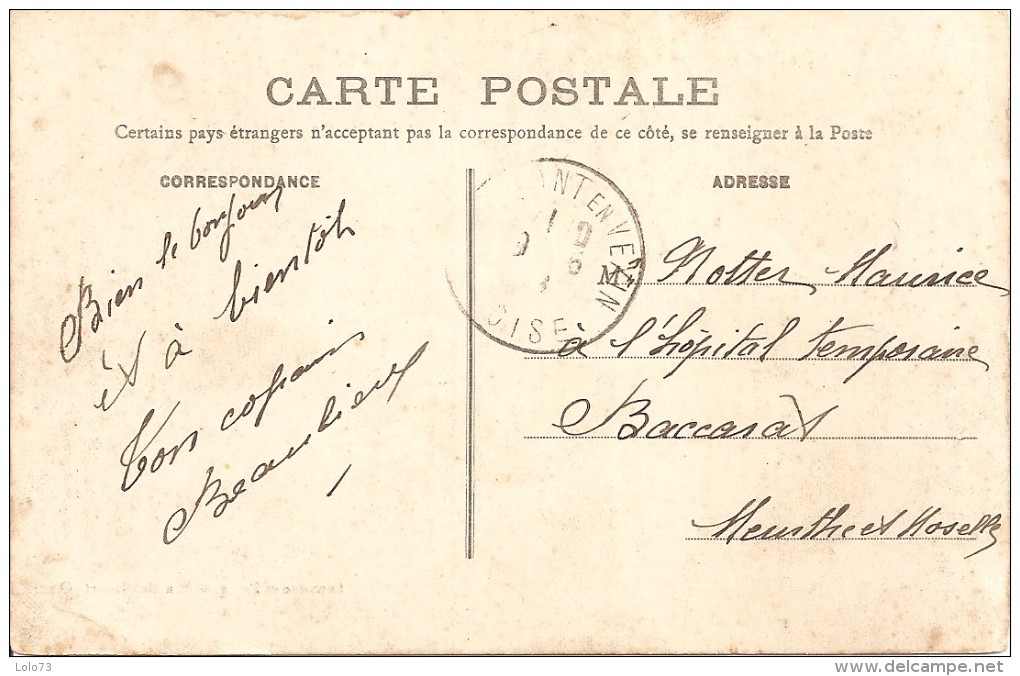 CARTE POSTALE
Certains pays étrangers n'acceptent pas la correspondance de ce côté, se renseigner à la Poste
CORRESPONDANCE
Bien le bonjour
et à bientôt
Ton copain
Beaulieux
ADRESSE
M. Notter Maurice
à l'hôpital temporaire
Baccarat
Meurthe et Moselle
ANT EN VEXIN
OISE
Lolo73
www.delcampe.net